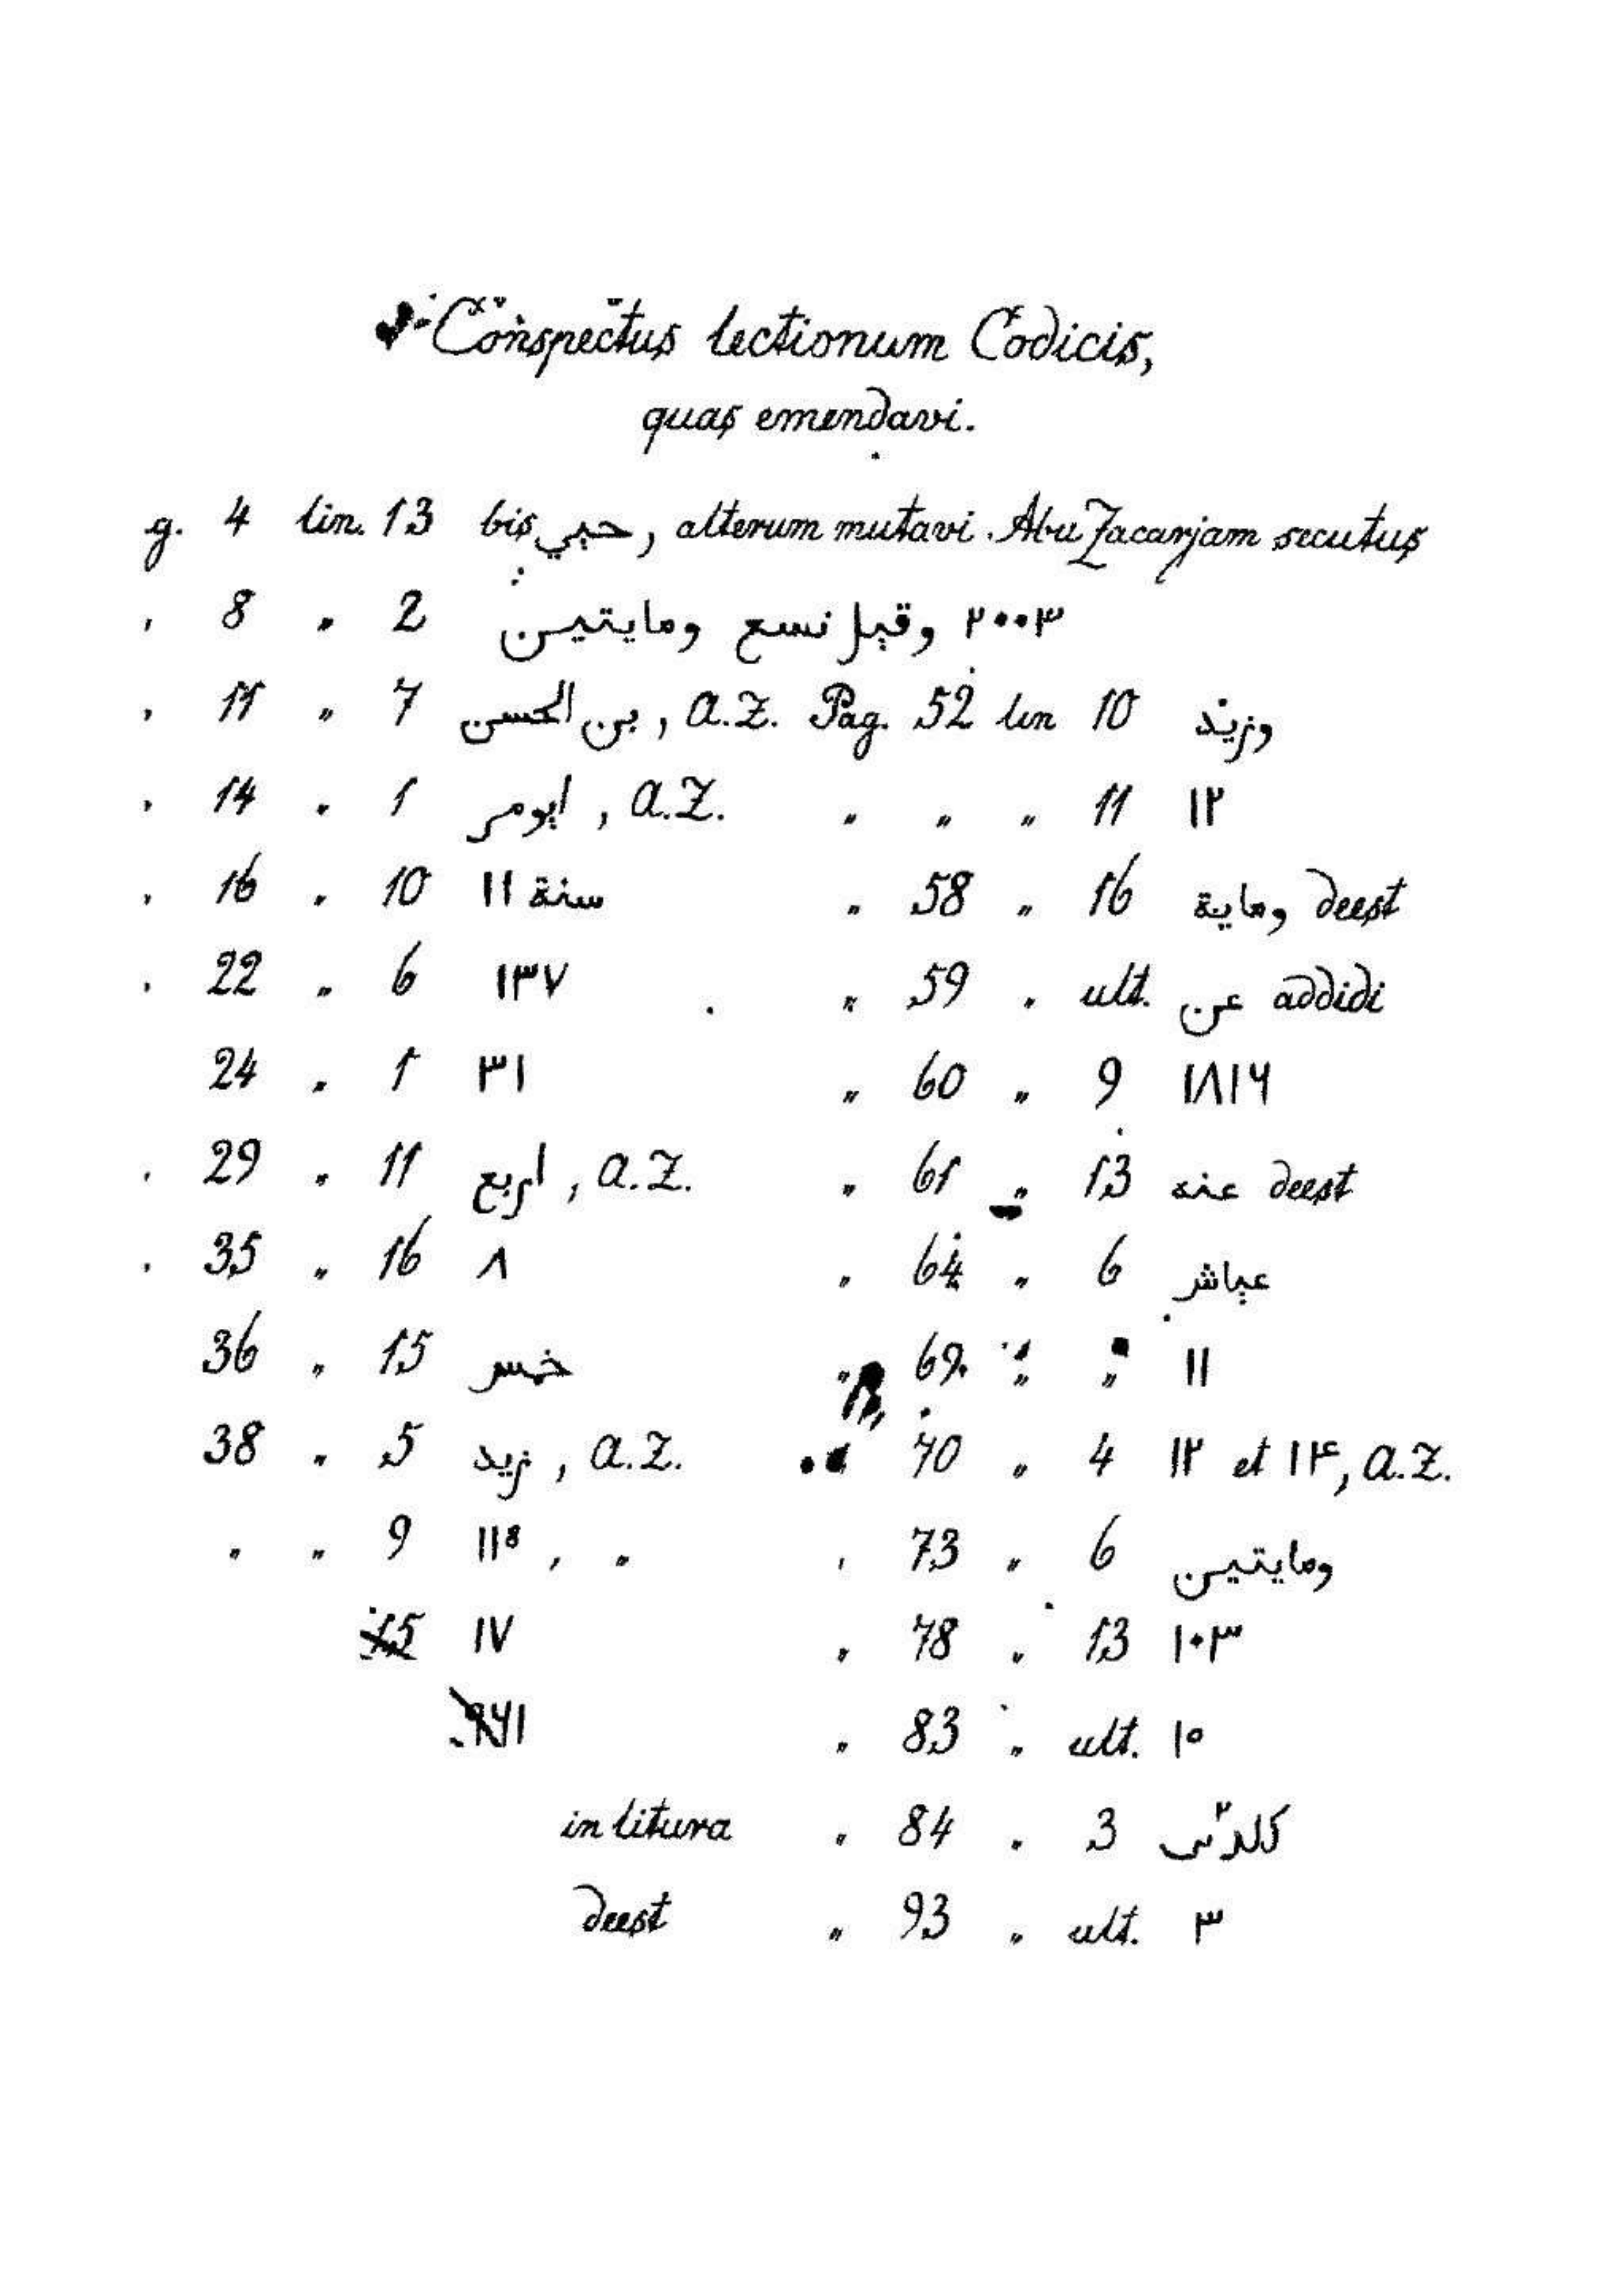 Conspectus lectionum Codicis,
quas emendavi.
g. 4 lin. 13 bis حبي, alterum mutavi. Abu Zacarjam secutus
, 8 „ 2 ٢٠٠٣ وقبل نسع ومايتين
, 11 „ 7 بن الحسن, A.Z. Pag. 52 lin 10 وزيد
, 14 „ 1 ايومر, A.Z. „ „ „ 11 ١٢
, 16 „ 10 سنة ١١ „ 58 „ 16 وماية deest
, 22 „ 6 ١٣٧ „ 59 „ ult. عن addidi
24 „ 1 ٣١ „ 60 „ 9 ١٨١٦
, 29 „ 11 اربع, A.Z. „ 61 „ 13 عنه deest
, 35 „ 16 ٨ „ 64 „ 6 عباشر
36 „ 15 خمس „ 69 „ „ ١١
38 „ 5 زيد, A.Z. 70 „ 4 ١٢ et ١۴, A.Z.
„ „ 9 , „ , 73 „ 6 ومايتين
15 ١٧ „ 78 „ 13 ١٠٣
„ 83 „ ult. ١٥
in litura „ 84 „ 3
deest „ 93 „ ult. ٣